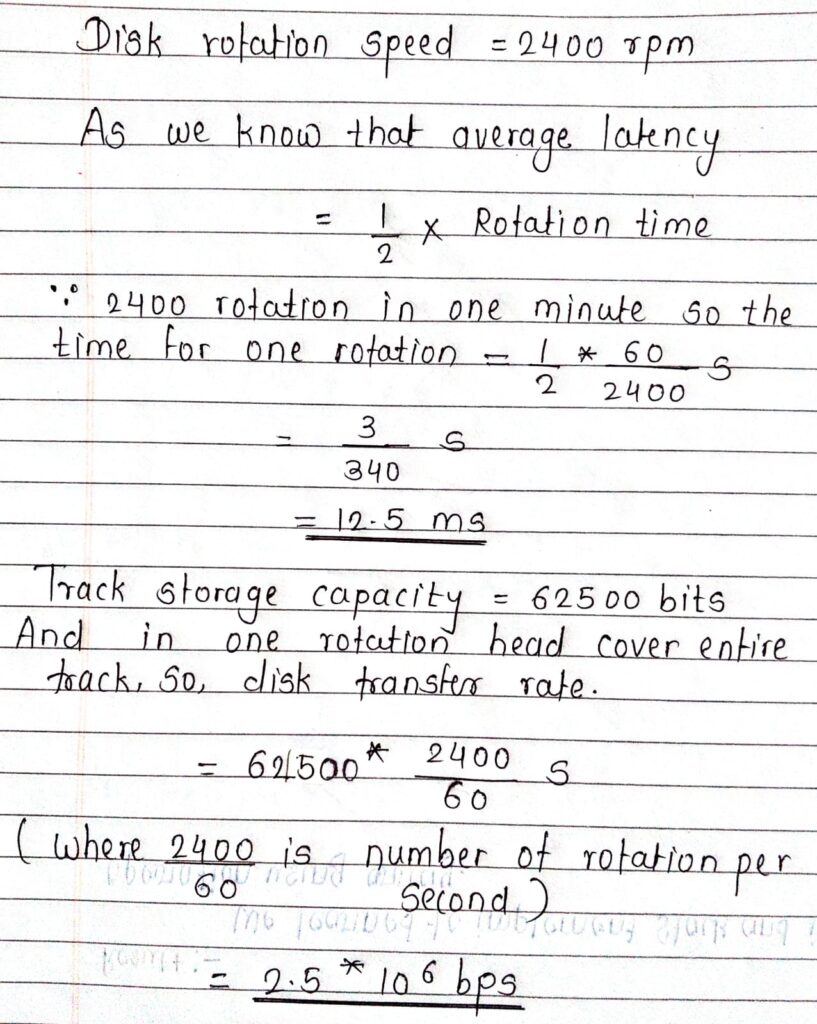 Disk rotation speed = 2400 rpm
As we know that average latency
= 1/2 x Rotation time
∵ 2400 rotation in one minute so the
time for one rotation = 1/2 * 60/2400 s
= 3/340 s
= 12.5 ms
Track storage capacity = 62500 bits
And in one rotation head cover entire
track, So, disk transfer rate.
= 62500 * 2400/60 s
( where 2400/60 is number of rotation per
second )
= 2.5 * 10^6 bps